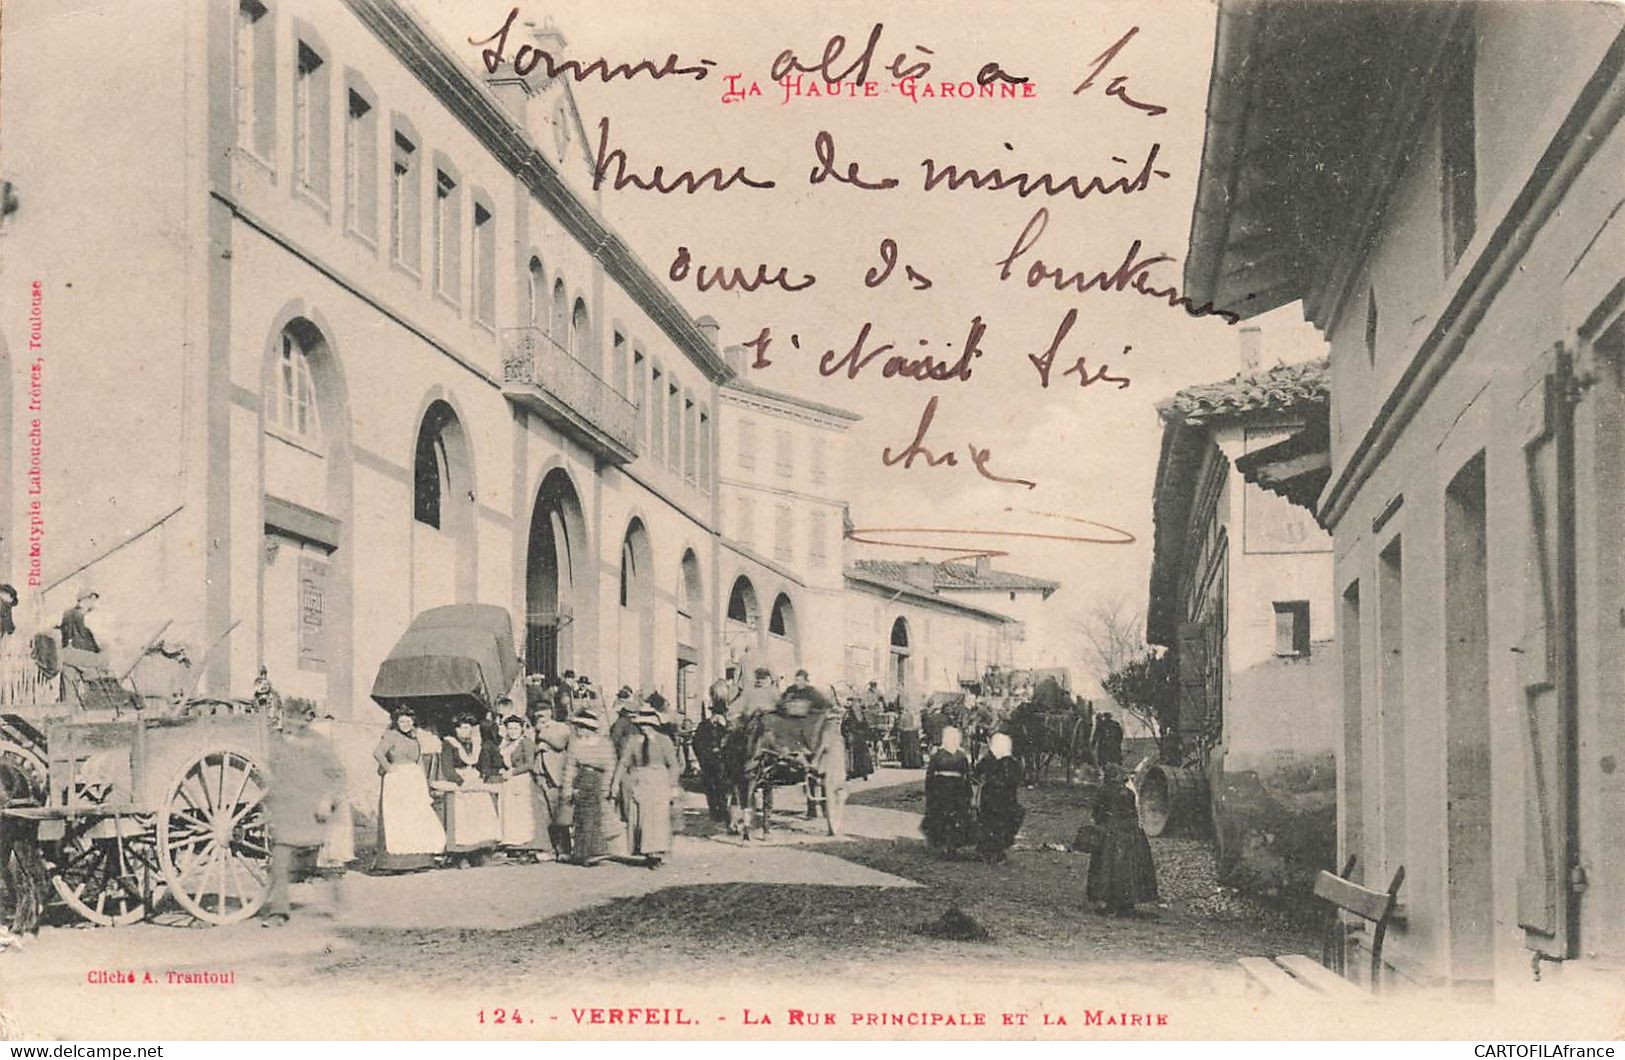 sommes altés a la
LA HAUTE-GARONNE
Messe de minuit
avec des lanternes
s'etait très
chic
Phototypie Labouche frères, Toulouse
Cliché A. Trantoul
124. - VERFEIL. - LA RUE PRINCIPALE ET LA MAIRIE
CARTOFILAfrance